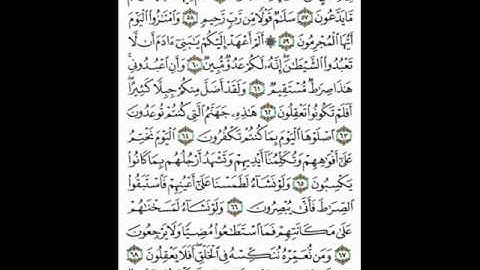 مَّا يَدَّعُونَ ٥٧ سَلَٰمٌ قَوْلًا مِّن رَّبٍّ رَّحِيمٍ ٥٨ وَٱمْتَٰزُوا۟ ٱلْيَوْمَ
أَيُّهَا ٱلْمُجْرِمُونَ ٥٩ ۞ أَلَمْ أَعْهَدْ إِلَيْكُمْ يَٰبَنِىٓ ءَادَمَ أَن لَّا
تَعْبُدُوا۟ ٱلشَّيْطَٰنَ إِنَّهُۥ لَكُمْ عَدُوٌّ مُّبِينٌ ٦٠ وَأَنِ ٱعْبُدُونِى
هَٰذَا صِرَٰطٌ مُّسْتَقِيمٌ ٦١ وَلَقَدْ أَضَلَّ مِنكُمْ جِبِلًّا كَثِيرًا
أَفَلَمْ تَكُونُوا۟ تَعْقِلُونَ ٦٢ هَٰذِهِۦ جَهَنَّمُ ٱلَّتِى كُنتُمْ تُوعَدُونَ
٦٣ ٱصْلَوْهَا ٱلْيَوْمَ بِمَا كُنتُمْ تَكْفُرُونَ ٦٤ ٱلْيَوْمَ نَخْتِمُ
عَلَىٰٓ أَفْوَٰهِهِمْ وَتُكَلِّمُنَآ أَيْدِيهِمْ وَتَشْهَدُ أَرْجُلُهُم بِمَا كَانُوا۟
يَكْسِبُونَ ٦٥ وَلَوْ نَشَآءُ لَطَمَسْنَا عَلَىٰٓ أَعْيُنِهِمْ فَٱسْتَبَقُوا۟
ٱلصِّرَٰطَ فَأَنَّىٰ يُبْصِرُونَ ٦٦ وَلَوْ نَشَآءُ لَمَسَخْنَٰهُمْ
عَلَىٰ مَكَانَتِهِمْ فَمَا ٱسْتَطَٰعُوا۟ مُضِيًّا وَلَا يَرْجِعُونَ
٦٧ وَمَن نُّعَمِّرْهُ نُنَكِّسْهُ فِى ٱلْخَلْقِ أَفَلَا يَعْقِلُونَ ٦٨